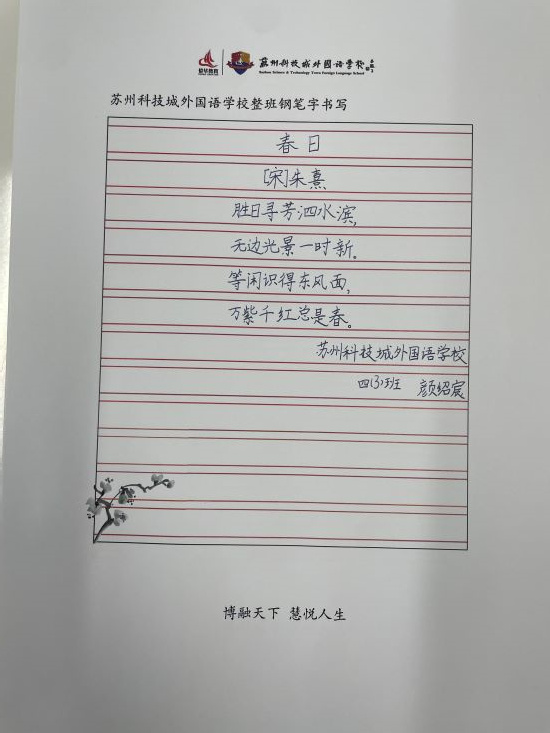 苏州科技城外国语学校
Suzhou Science & Technology Town Foreign Language School
苏州科技城外国语学校整班钢笔字书写
春日
[宋]朱熹
胜日寻芳泗水滨，
无边光景一时新。
等闲识得东风面，
万紫千红总是春。
苏州科技城外国语学校
四(3)班 颜绍宸
博融天下 慧悦人生